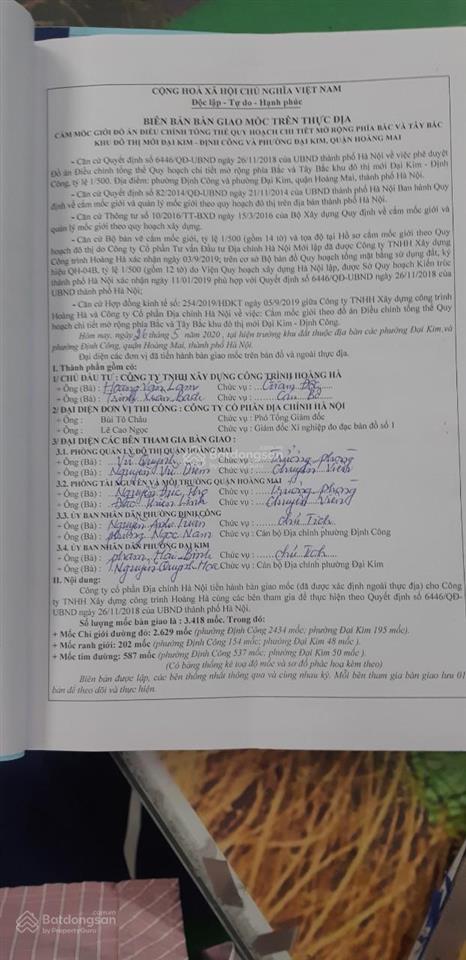 CỘNG HOÀ XÃ HỘI CHỦ NGHĨA VIỆT NAM
Độc lập - Tự do - Hạnh phúc
BIÊN BẢN BÀN GIAO MỐC TRÊN THỰC ĐỊA
CẮM MỐC GIỚI ĐỒ ÁN ĐIỀU CHỈNH TỔNG THỂ QUY HOẠCH CHI TIẾT MỞ RỘNG PHÍA BẮC VÀ TÂY BẮC
KHU ĐÔ THỊ MỚI ĐẠI KIM – ĐỊNH CÔNG VÀ PHƯỜNG ĐẠI KIM, QUẬN HOÀNG MAI
- Căn cứ Quyết định số 6446/QĐ-UBND ngày 26/11/2018 của UBND thành phố Hà Nội về việc phê duyệt
Đồ án Điều chỉnh tổng thể Quy hoạch chi tiết mở rộng phía Bắc và Tây Bắc khu đô thị mới Đại Kim - Định
Công, tỷ lệ 1/500. Địa điểm: phường Định Công và phường Đại Kim, quận Hoàng Mai, thành phố Hà Nội.
- Căn cứ Quyết định số 82/2014/QĐ-UBND ngày 21/11/2014 của UBND thành phố Hà Nội Ban hành Quy
định về cắm mốc giới và quản lý mốc giới theo quy hoạch đô thị trên địa bàn thành phố Hà Nội.
- Căn cứ Thông tư số 10/2016/TT-BXD ngày 15/3/2016 của Bộ Xây dựng Quy định về cắm mốc giới và
quản lý mốc giới theo quy hoạch xây dựng.
- Căn cứ Bộ bản vẽ cắm mốc giới, tỷ lệ 1/500 (gồm 14 tờ) và toạ độ tại Hồ sơ cắm mốc giới theo Quy
hoạch đô thị do Công ty Cổ phần Tư vấn Đầu tư Địa chính Hà Nội Mới lập đã được Công ty TNHH Xây dựng
Công trình Hoàng Hà xác nhận ngày 03/9/2019; trên cơ sở Bộ bản đồ Quy hoạch tổng mặt bằng sử dụng đất, ký
hiệu QH-04B, tỷ lệ 1/500 (gồm 12 tờ) do Viện Quy hoạch xây dựng Hà Nội lập, được Sở Quy hoạch Kiến trúc
thành phố Hà Nội xác nhận ngày 11/01/2019 phù hợp với Quyết định số 6446/QĐ-UBND ngày 26/11/2018 của
UBND thành phố Hà Nội;
- Căn cứ Hợp đồng kinh tế số: 254/2019/HĐKT ngày 05/9/2019 giữa Công ty TNHH Xây dựng công trình
Hoàng Hà và Công ty Cổ phần Địa chính Hà Nội về việc: Cắm mốc giới theo đồ án Điều chỉnh tổng thể Quy
hoạch chi tiết mở rộng phía Bắc và Tây Bắc khu đô thị mới Đại Kim - Định Công.
Hôm nay, ngày 26 tháng 5 năm 2020, tại hiện trường khu đất thuộc địa bàn các phường Đại Kim, và
phường Định Công, quận Hoàng Mai, thành phố Hà Nội.
Đại diện các đơn vị đã tiến hành bàn giao mốc trên bản đồ và ngoài thực địa.
I. Thành phần gồm có:
1/ CHỦ ĐẦU TƯ : CÔNG TY TNHH XÂY DỰNG CÔNG TRÌNH HOÀNG HÀ
+ Ông (Bà) : Hoàng Văn Lam Chức vụ : Giám Đốc
+ Ông (Bà) : Trịnh Xuân Bách Chức vụ : Cán Bộ
2/ ĐẠI DIỆN ĐƠN VỊ THI CÔNG : CÔNG TY CỔ PHẦN ĐỊA CHÍNH HÀ NỘI
+ Ông : Bùi Tô Châu Chức vụ : Phó Tổng Giám đốc
+ Ông : Lê Cao Ngọc Chức vụ : Giám đốc Xí nghiệp đo đạc bản đồ số 1
3/ ĐẠI DIỆN CÁC BÊN THAM GIA BÀN GIAO :
3.1. PHÒNG QUẢN LÝ ĐÔ THỊ QUẬN HOÀNG MAI
+ Ông (Bà) : Vũ Quỳnh Chức vụ : Trưởng phòng
+ Ông (Bà) : Nguyễn Vũ Chức vụ : Chuyên Viên
3.2. PHÒNG TÀI NGUYÊN VÀ MÔI TRƯỜNG QUẬN HOÀNG MAI
+ Ông (Bà) : Nguyễn Đức Chức vụ : Trưởng phòng
+ Ông (Bà) : Chức vụ : Chuyên Viên
3.3. UỶ BAN NHÂN DÂN PHƯỜNG ĐỊNH CÔNG
+ Ông (Bà) : Nguyễn Anh Tuấn Chức vụ : Chủ Tịch
+ Ông (Bà) : Phương Ngọc Nam Chức vụ : Cán bộ Địa chính phường Định Công
3.4. UỶ BAN NHÂN DÂN PHƯỜNG ĐẠI KIM
+ Ông (Bà) : Phạm Hải Bình Chức vụ : Chủ Tịch
+ Ông (Bà) : Nguyễn Quỳnh Hoa Chức vụ : Cán bộ Địa chính phường Đại Kim
II. Nội dung:
Công ty cổ phần Địa chính Hà Nội tiến hành bàn giao mốc (đã được xác định ngoài thực địa) cho Công
ty TNHH Xây dựng công trình Hoàng Hà cùng các bên tham gia để thực hiện theo Quyết định số 6446/QĐ-
UBND ngày 26/11/2018 của UBND thành phố Hà Nội.
Số lượng mốc bàn giao là : 3.418 mốc. Trong đó:
+ Mốc Chỉ giới đường đỏ: 2.629 mốc (phường Định Công 2434 mốc; phường Đại Kim 195 mốc).
+ Mốc ranh giới: 202 mốc (phường Định Công 154 mốc; phường Đại Kim 48 mốc ).
+ Mốc tim đường: 587 mốc (phường Định Công 537 mốc; phường Đại Kim 50 mốc ).
(Có bảng thống kê toạ độ mốc và sơ đồ phác hoạ kèm theo)
Biên bản được lập, các bên thống nhất thông qua và cùng nhau ký. Mỗi bên tham gia bàn giao lưu 01
bản để theo dõi và thực hiện.
Batdongsan
.com.vn
by PropertyGuru
Batdongsan
.com.vn
by PropertyGuru